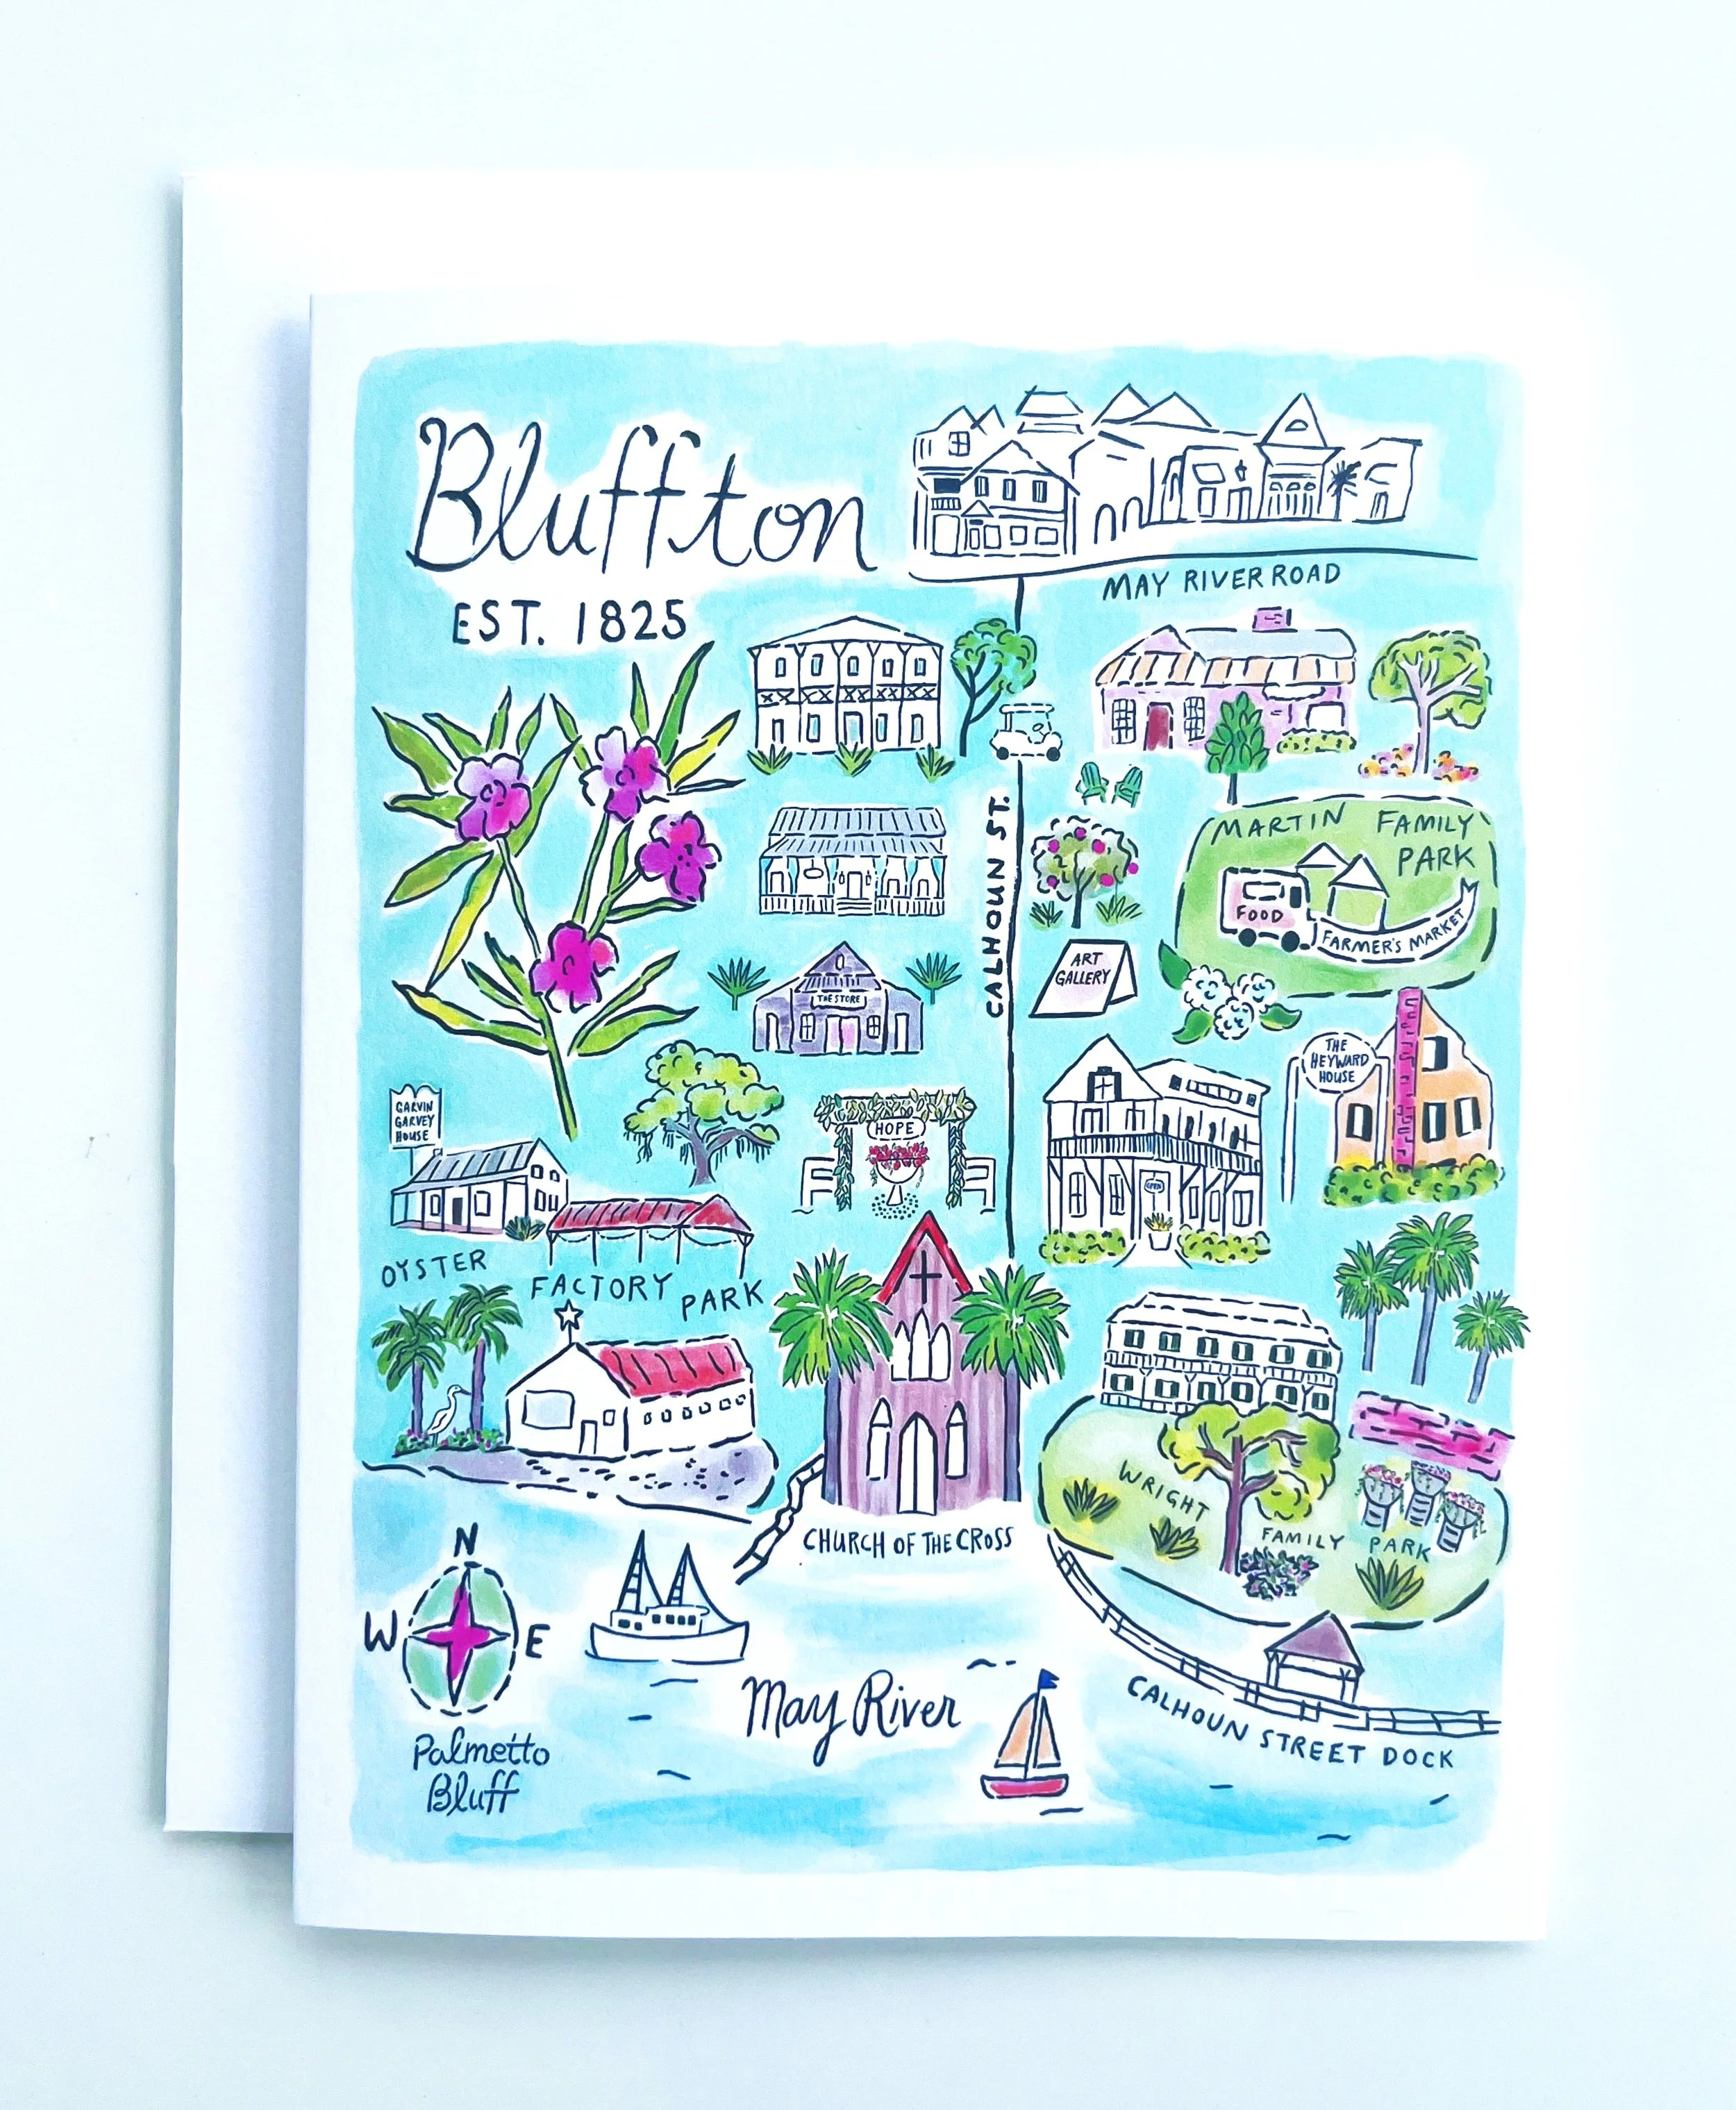 Bluffton
EST. 1825
MAY RIVER ROAD
CALHOUN ST.
MARTIN FAMILY
PARK
FOOD
FARMER'S MARKET
ART
GALLERY
THE STORE
THE
HEYWARD
HOUSE
GARVIN
GARVEY
HOUSE
HOPE
OPEN
OYSTER FACTORY PARK
CHURCH OF THE CROSS
WRIGHT
FAMILY PARK
N
W E
May River
CALHOUN STREET DOCK
Palmetto
Bluff